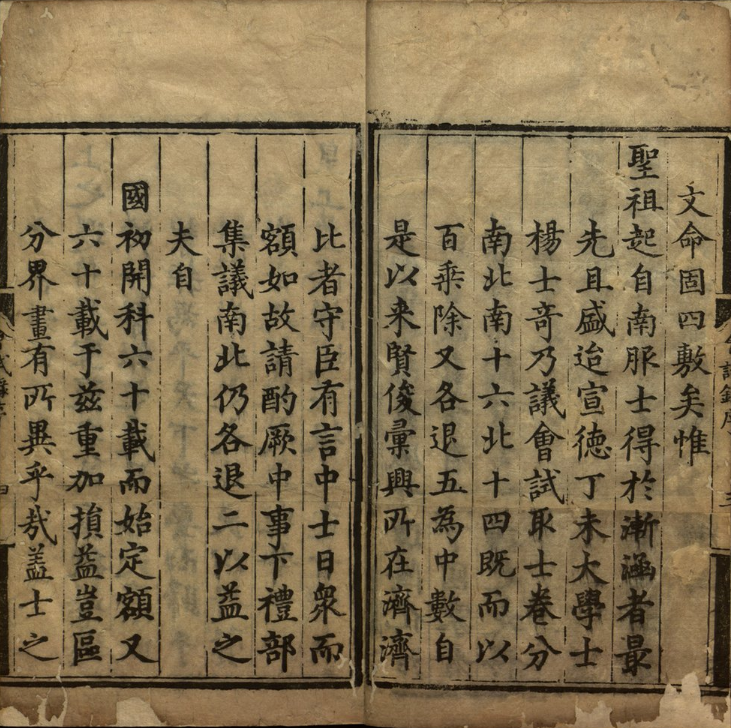 文命固四敷矣惟
聖祖起自南服士得於漸涵者最
先且盛迨宣德丁未大學士
楊士奇乃議會試取士卷分
南北南十六北十四既而以
百乘除又各退五為中數自
是以来賢俊彙興所在濟濟
比者守臣有言中士日衆而
額如故請酌厥中事下禮部
集議南北仍各退二以益之
夫自
國初開科六十載而始定額又
六十載于茲重加損益豈區
分界畫有所異乎㢤蓋士之